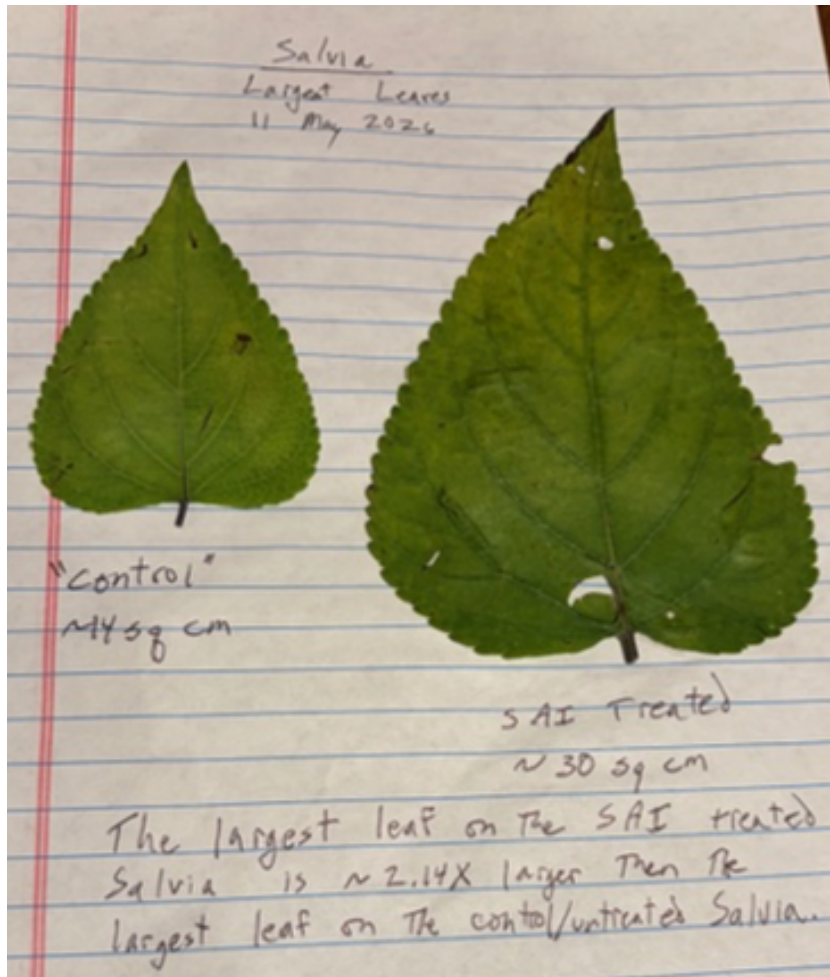 Salvia
Largest Leaves
11 May 2026
"Control"
~14 sq cm
SAI Treated
~ 30 sq cm
The largest leaf on The SAI treated
Salvia is ~ 2.14X larger Then The
largest leaf on The control/untreated Salvia.